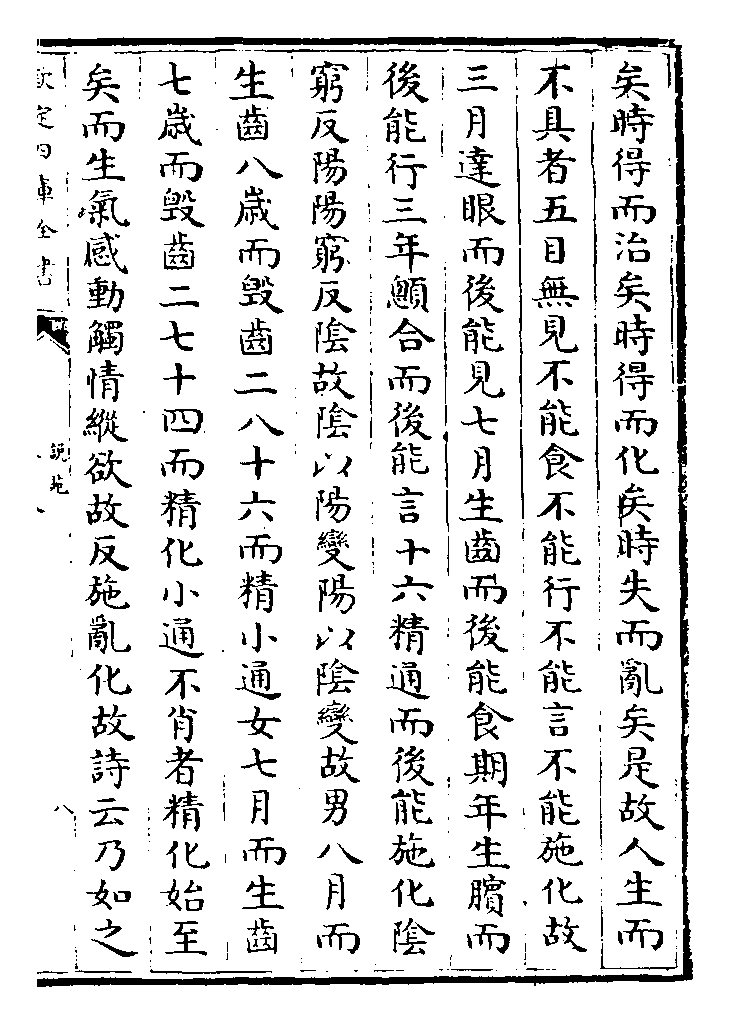 矣時得而治矣時得而化矣時失而亂矣是故人生而
不具者五目無見不能食不能行不能言不能施化故
三月達眼而後能見七月生齒而後能食期年生臏而
後能行三年顖合而後能言十六精通而後能施化陰
窮反陽陽窮反陰故陰以陽變陽以陰變故男八月而
生齒八歲而毀齒二八十六而精小通女七月而生齒
七歲而毀齒二七十四而精化小通不肖者精化始至
矣而生氣感動觸情縱欲故反施亂化故詩云乃如之
欽定四庫全書
說苑
八